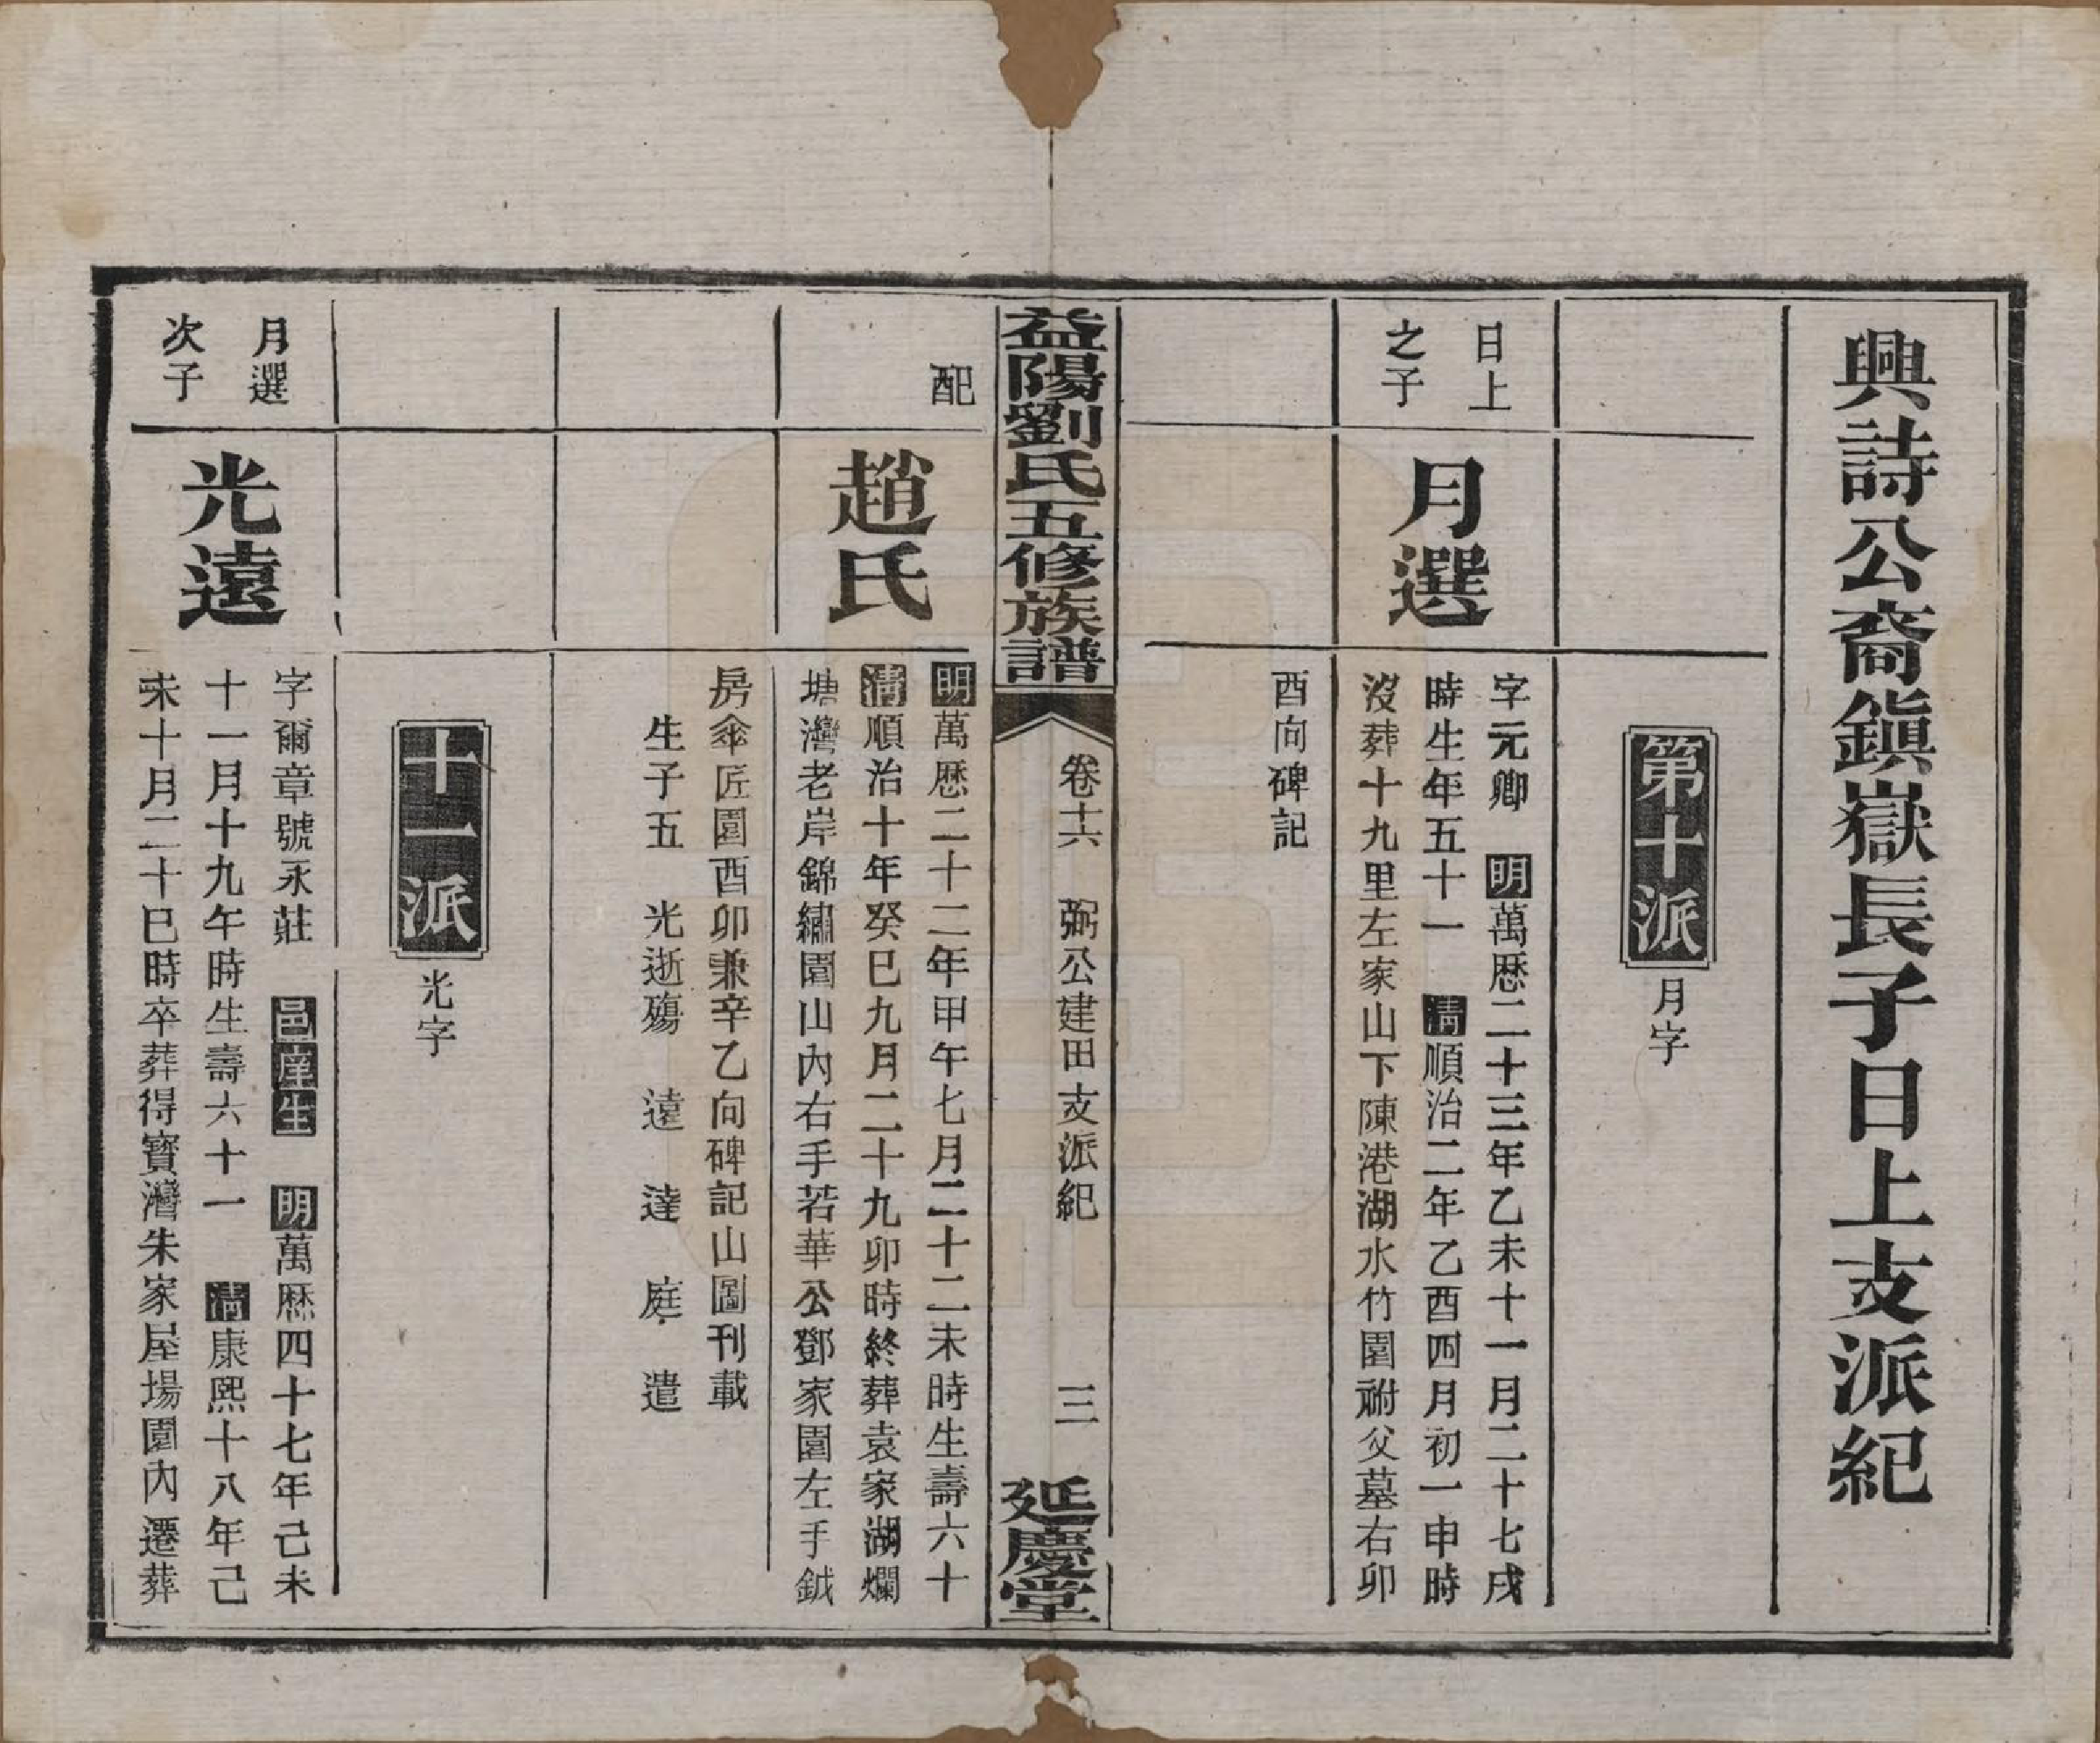 興詩公裔鎮嶽長子日上支派紀
第十派
月字
日上
之子
月選
字元卿 明萬歷二十三年乙未十一月二十七戌
時生年五十一 清順治二年乙酉四月初一申時
沒葬十九里左家山下陳港湖水竹園祔父墓右卯
酉向碑記
益陽劉氏五修族譜
卷十六 弼公建田支派紀 三
延慶堂
配
趙氏
明萬歷二十二年甲午七月二十二未時生壽六十
清順治十年癸巳九月二十九卯時終葬袁家湖爛
塘灣老岸錦繡園山內右手若華公鄧家園左手鉞
房傘匠園酉卯兼辛乙向碑記山圖刊載
生子五 光逝殤 遠 達 庭 遣
十一派
光字
月選
次子
光遠
字爾章號永莊 邑庠生 明萬歷四十七年己未
十一月十九午時生壽六十一 清康熙十八年己
未十月二十巳時卒葬得寶灣朱家屋場園內遷葬